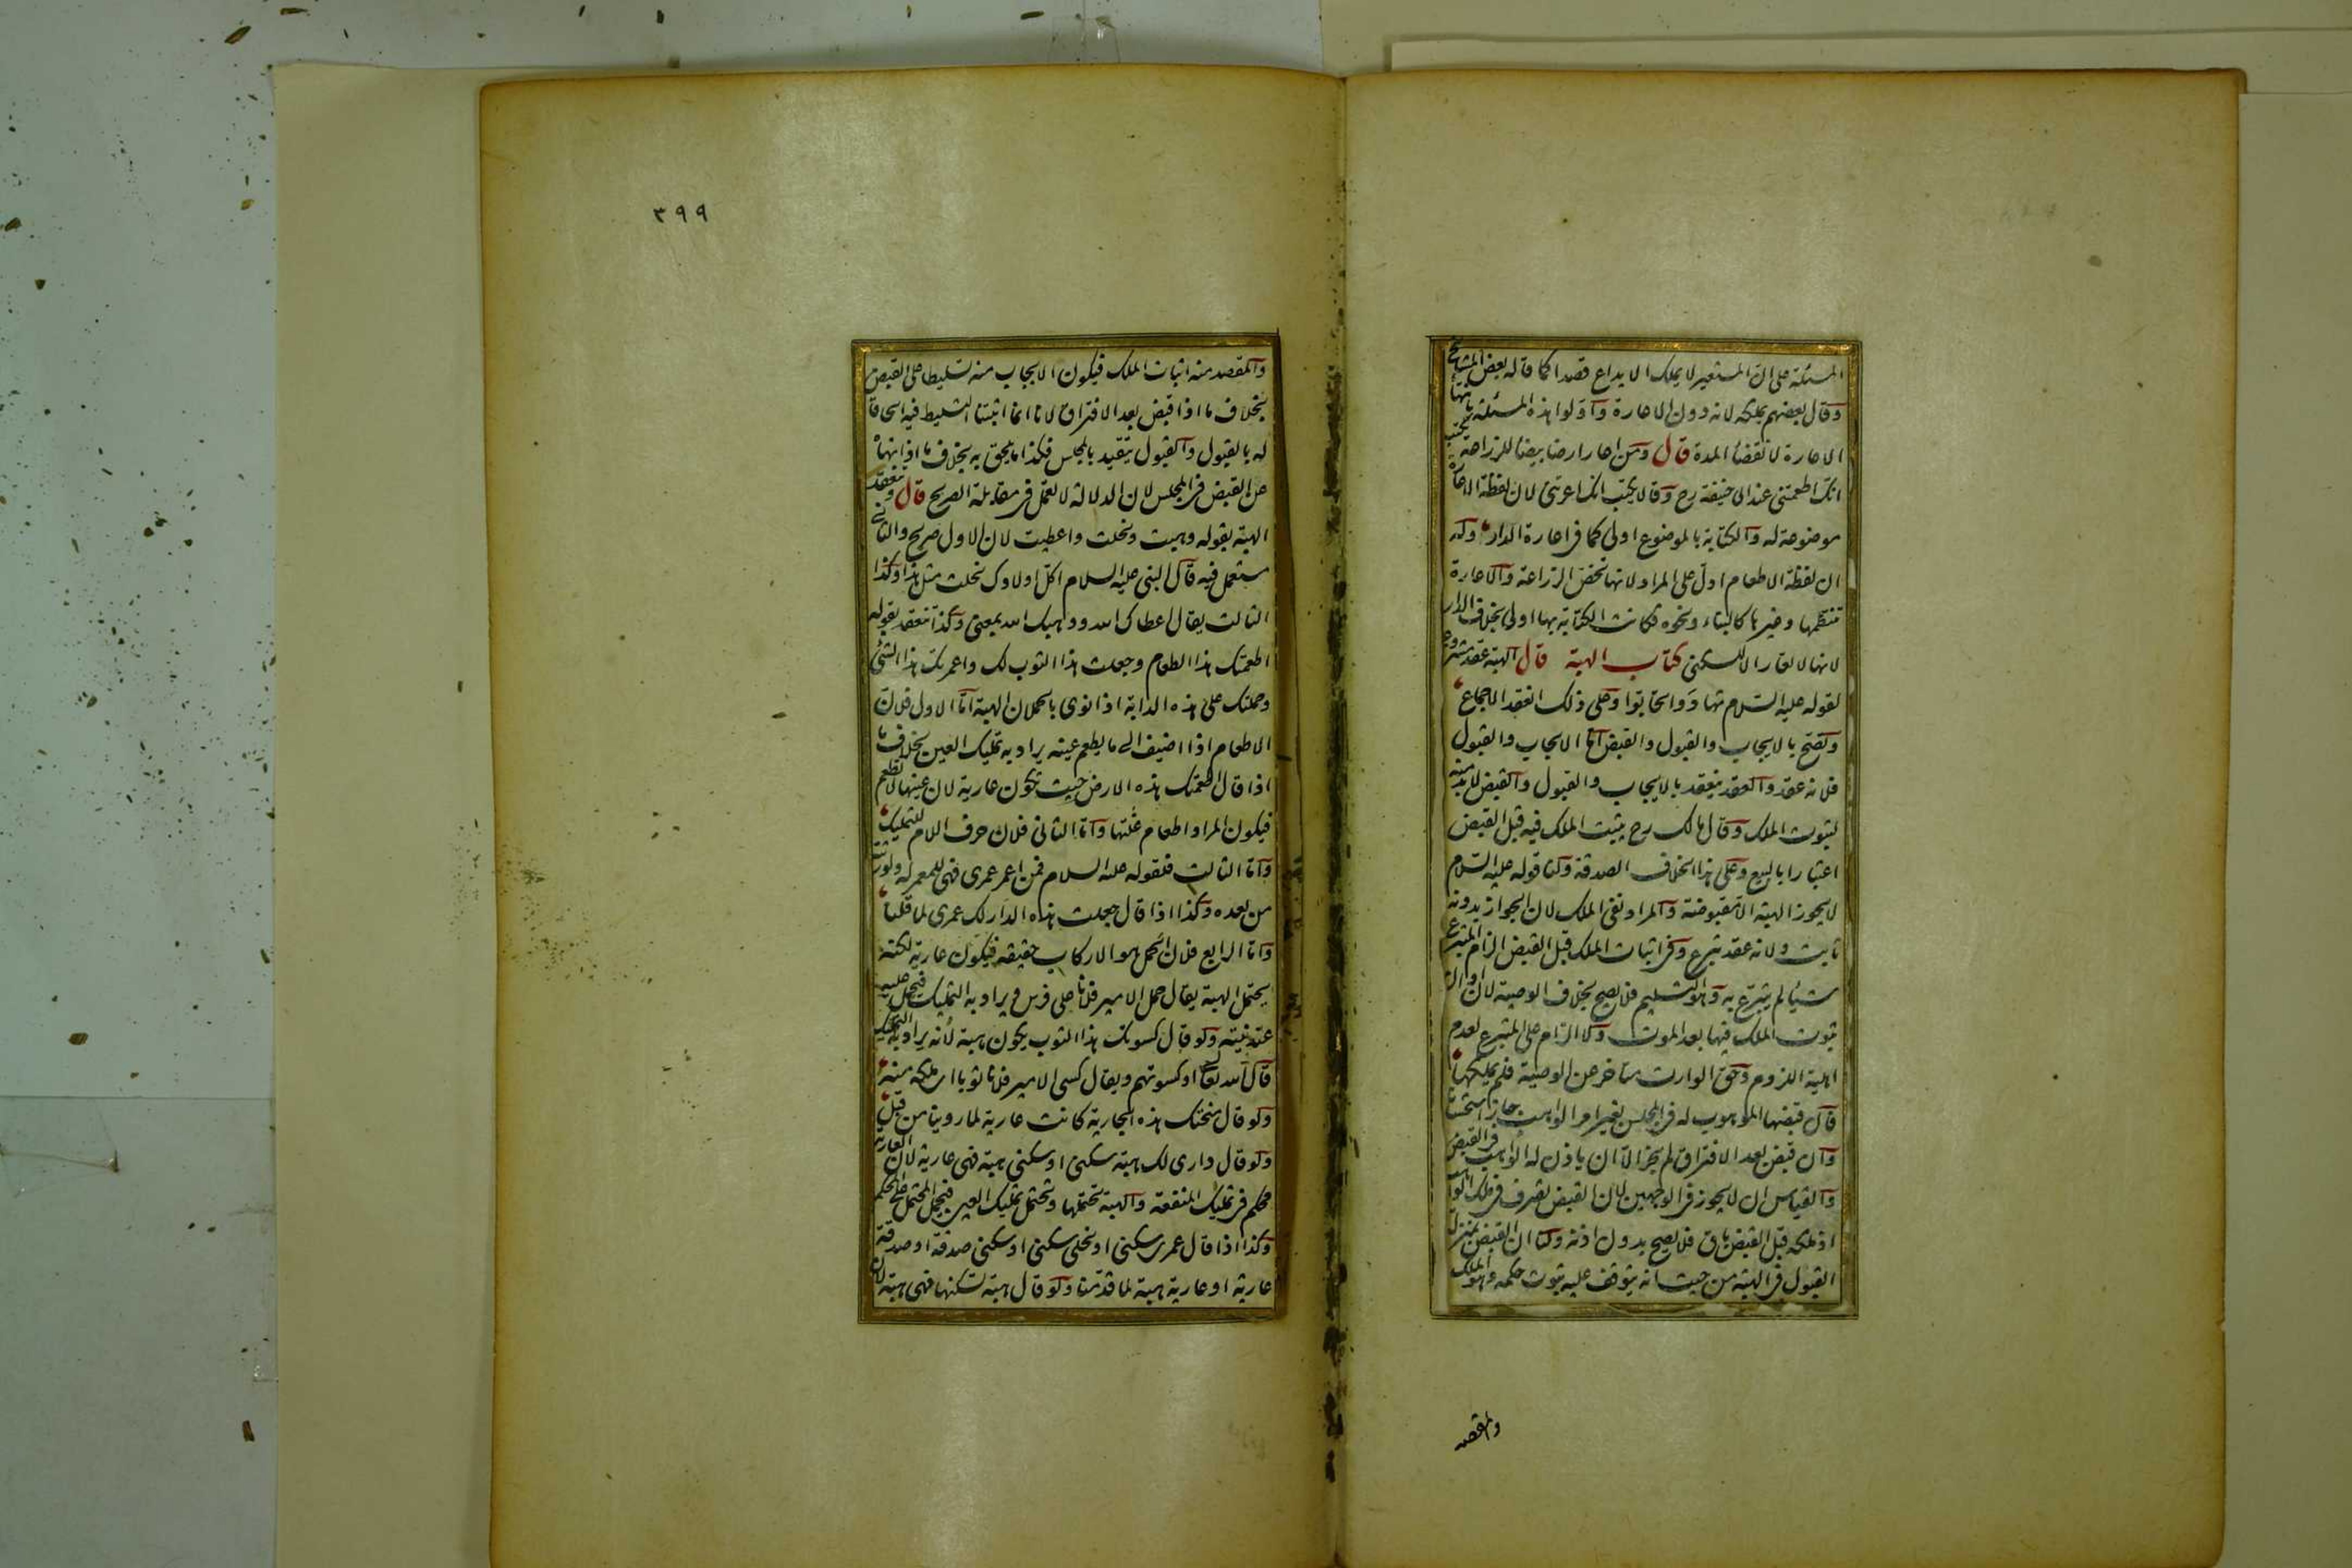 المسئلة على ان المستعير لا يملك الايداع قصدا كما قاله بعض المشايخ
وقال بعضهم يملكه لانه دون الاعارة واولوا هذه المسئلة بانتهاء
الاعارة لانقضاء المدة قال ومن اعار ارضا بيضاء للزراعة يكتب
انك اطعمتني عند ابى حنيفة رح وقالا يكتب انك اعرتنى لان لفظة الاعارة
موضوعة له والكتابة بالموضوع اولى كما فى اعارة الدار وله
ان لفظة الاطعام ادل على المراد لانها تخص الزراعة والاعارة
تنتظمها وغيرها كالبناء ونحوه فكانت الكتابة بها اولى بخلاف الدار
لانها لا تعار الا للسكنى كتاب الهبة قال الهبة عقد مشروع
لقوله عليه السلام تهادوا تحابوا وعلى ذلك انعقد الاجماع
وتصح بالايجاب والقبول والقبض اما الايجاب والقبول
فلانه عقد والعقد ينعقد بالايجاب والقبول والقبض لا بد منه
لثبوت الملك وقال مالك رح يثبت الملك فيه قبل القبض
اعتبارا بالبيع وعلى هذا الخلاف الصدقة ولنا قوله عليه السلام
لا يجوز الهبة الا مقبوضة والمراد نفى الملك لان الجواز بدونه
ثابت ولانه عقد تبرع وفى اثبات الملك قبل القبض الزام المتبرع
شيئا لم يتبرع به وهو التسليم فلا يصح بخلاف الوصية لان اوان
ثبوت الملك فيها بعد الموت ولا الزام على المتبرع لعدم
اهلية اللزوم وحق الوارث متاخر عن الوصية فلم يملكها
قال قبضها الموهوب له فى المجلس بغير امر الواهب جاز استحسانا
وان قبض بعد الافتراق لم يجز الا ان ياذن له الواهب فى القبض
والقياس ان لا يجوز فى الوجهين لان القبض تصرف فى ملك الواهب
اذ ملكه قبل القبض باق فلا يصح بدون اذنه ولنا ان القبض بمنزلة
القبول فى الهبة من حيث انه يتوقف عليه ثبوت حكمه وهو الملك
والمقصد
٣٩٩
والمقصد منه اثبات الملك فيكون الايجاب منه تسليطا على القبض
بخلاف ما اذا قبض بعد الافتراق لانا انما اثبتنا التسليط فيه الحاقا
له بالقبول والقبول يتقيد بالمجلس فكذا ما يلحق به بخلاف ما اذا نهاه
عن القبض فى المجلس لان الدلالة لا تعمل فى مقابلة الصريح قال وينعقد
الهبة بقوله وهبت ونحلت واعطيت لان الاول صريح والثانى
مستعمل فيه قال النبى عليه السلام اكل اولادك نحلت مثل هذا وكذا
الثالث يقال اعطاك الله ووهبك الله بمعنى وكذا تنعقد بقوله
اطعمتك هذا الطعام وجعلت هذا الثوب لك واعمرتك هذا الشئ
وحملتك على هذه الدابة اذا نوى بالحملان الهبة اما الاول فلان
الاطعام اذا اضيف الى ما يطعم عينه يراد به تمليك العين بخلاف ما
اذا قال اطعمتك هذه الارض حيث تكون عارية لان عينها لا تطعم
فيكون المراد اطعام غلتها واما الثانى فلان حرف اللام للتمليك
واما الثالث فلقوله عليه السلام فمن اعمر عمرى فهى للمعمر له ولورثته
من بعده وكذا اذا قال جعلت هذه الدار لك عمرى لما قلنا
واما الرابع فلان الحمل هو الاركاب حقيقه فيكون عارية لكنه
يحتمل الهبة يقال حمل الامير فلانا على فرس ويراد به التمليك فيحمل عليه
عند نيته ولو قال كسوتك هذا الثوب يكون هبة لانه يراد به التمليك
قال الله تعالى او كسوتهم ويقال كسى الامير فلانا ثوبا اى ملكه منه
ولو قال منحتك هذه الجارية كانت عارية لما روينا من قبل
ولو قال دارى لك هبة سكنى او سكنى هبة فهى عارية لان العارية
محكم فى تمليك المنفعة والهبة تحتملها وتحتمل تمليك العين فيحمل المحتمل على المحكم
وكذا اذا قال عمرى سكنى او نحلى سكنى او سكنى صدقة او صدقة
عارية او عارية هبة لما قدمنا ولو قال هبة تسكنها فهى هبة لان